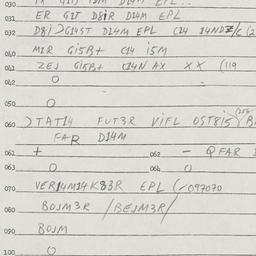 031 ER GIT D8iR D14M EPL
032 D8i>G14ST D14M EPL C14 14NDZ/C (2
040 M1R Gi5B+ C14 i5M
041 ZEJ Gi5B+ C14N AX XX (119
0
050 0
060 >TAT14 FUT3R ViFL OST8i5
FAR D14M
061 + 062 - QFAR
063 0 064 0
070 VER14M14K83R EPL (-097070
080 BOJM3R /BEJM3R/
090 BOJM
100 0